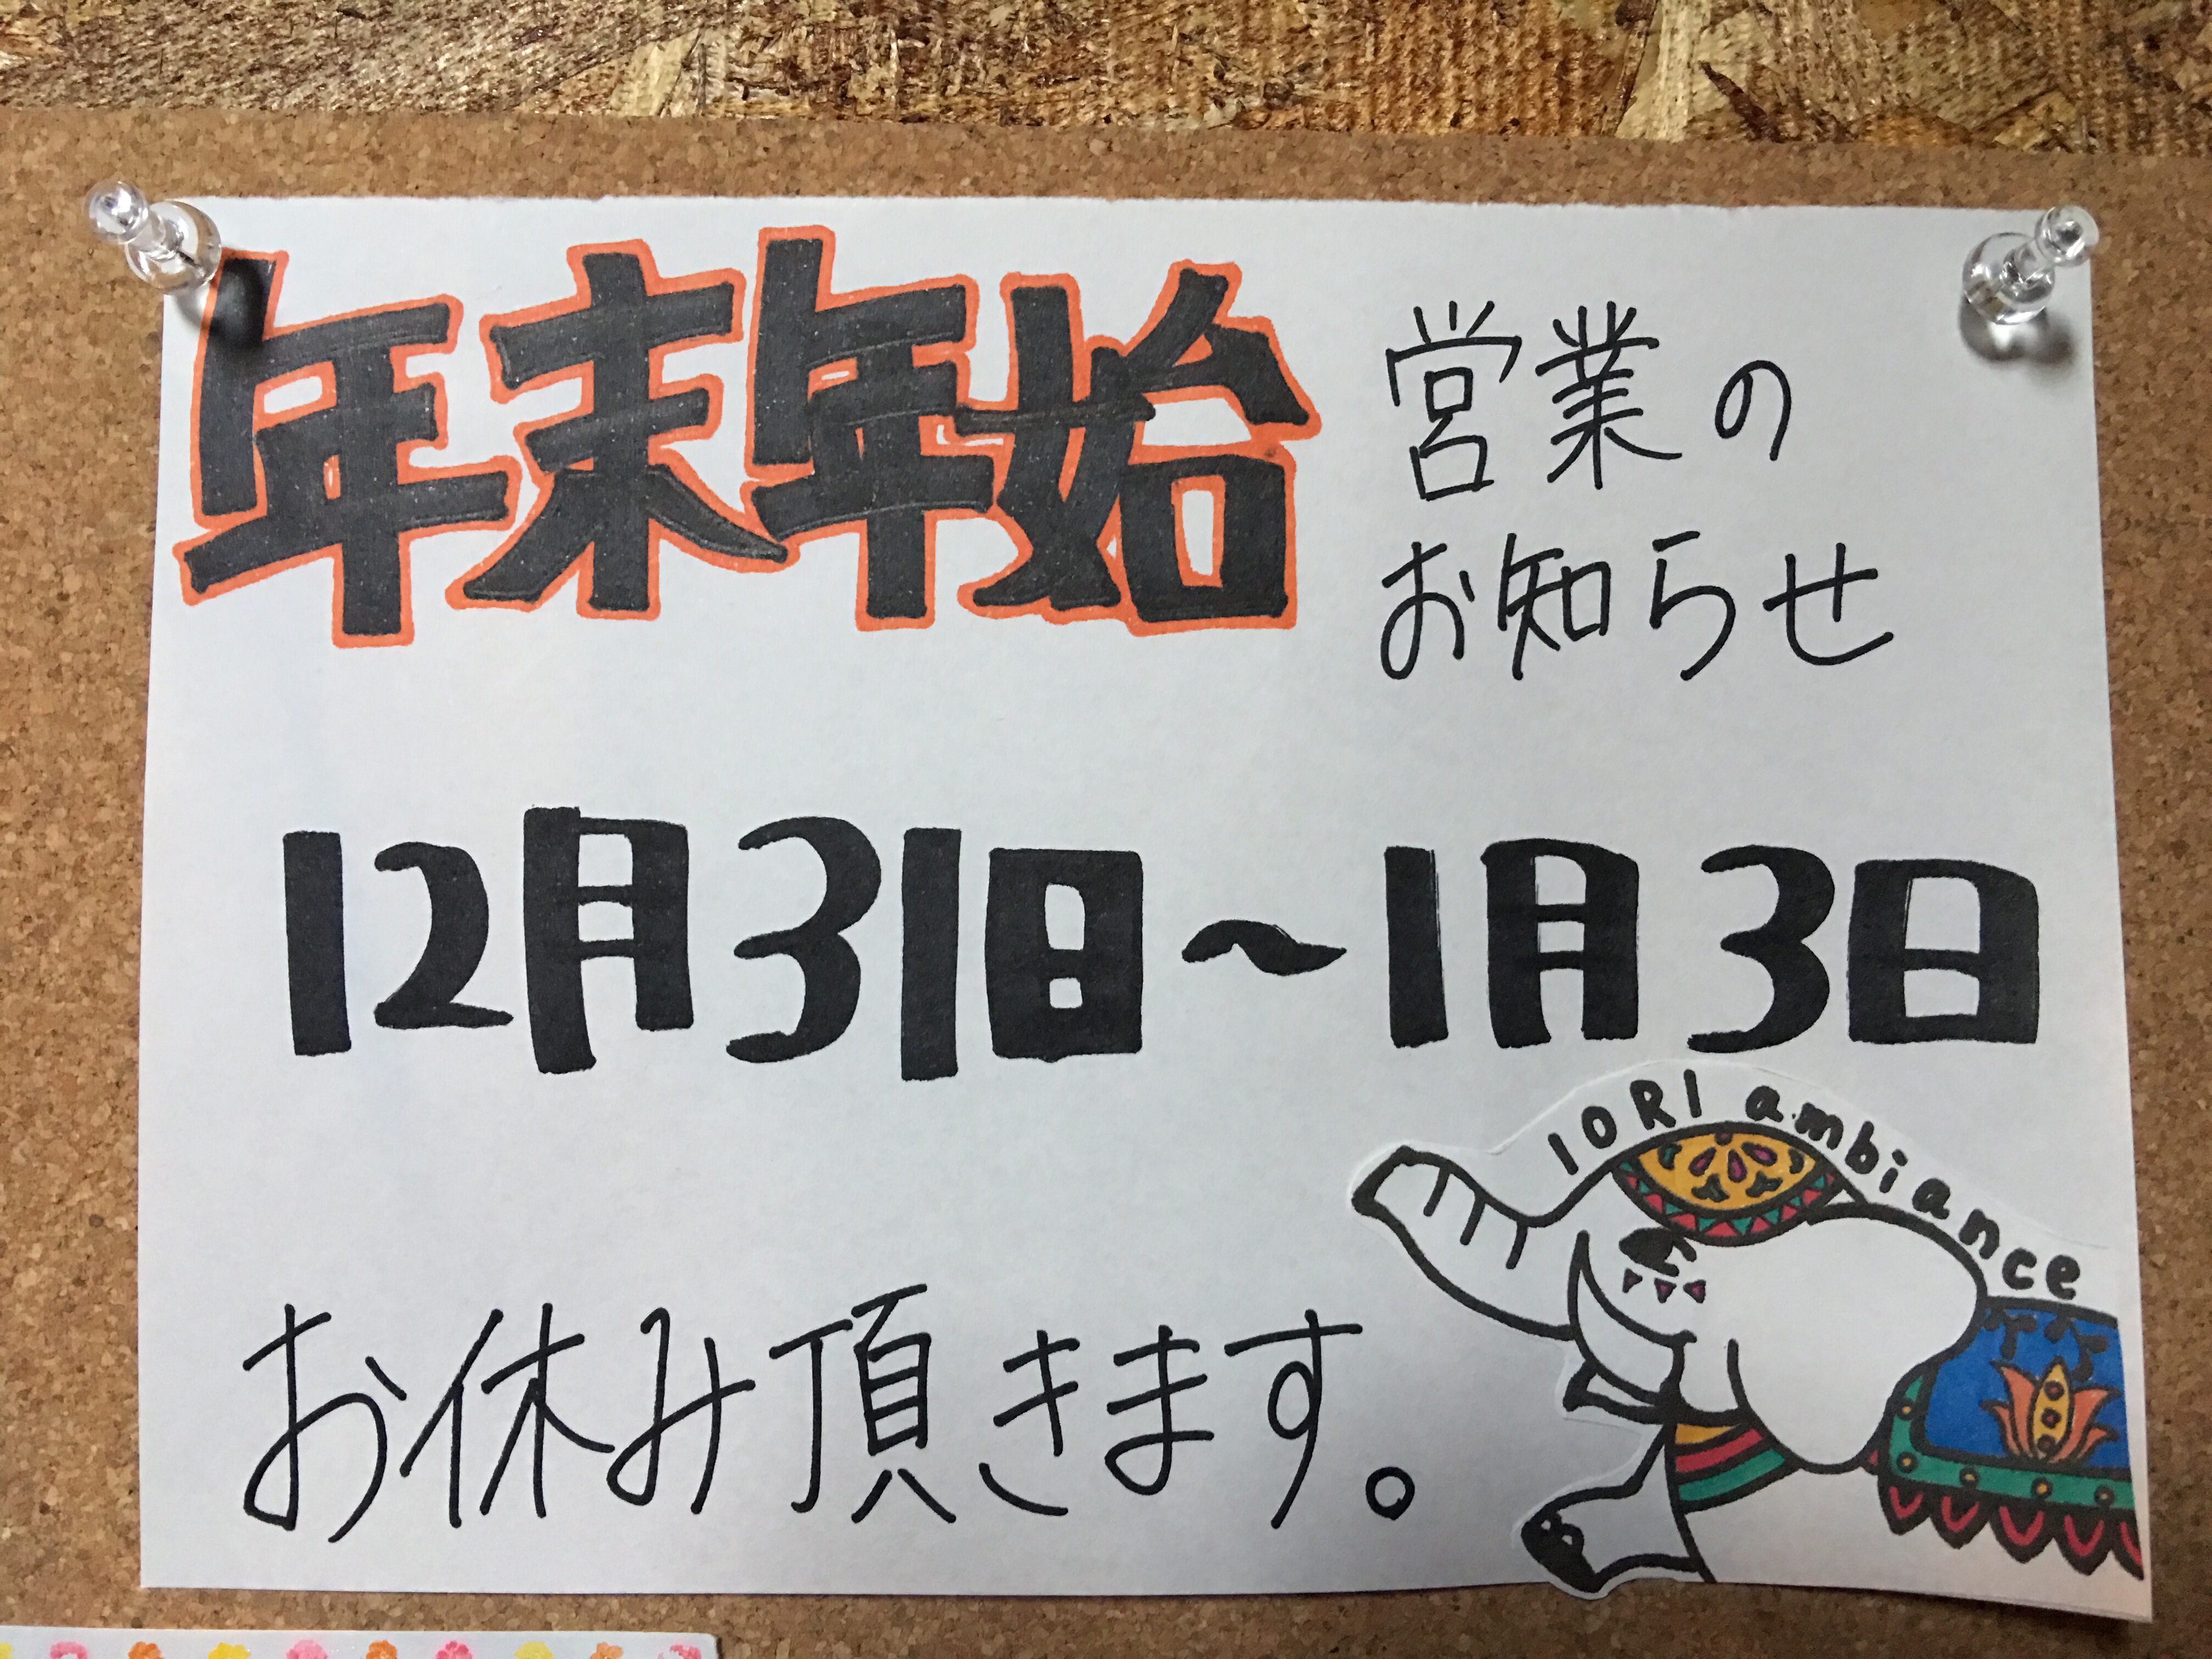 年末年始
営業の
お知らせ
12月31日〜1月3日
IORI ambiance
お休み頂きます。